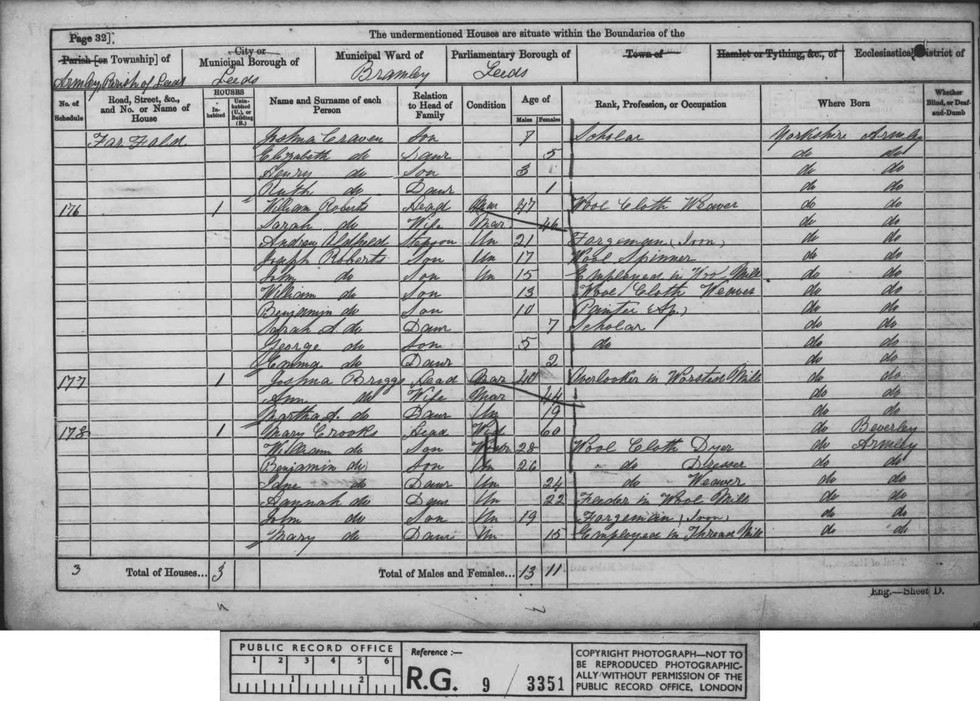 Page 32]
The undermentioned Houses are situate within the Boundaries of the
Parish [or Township] of
Armley Parish of Leeds
City or Municipal Borough of
Leeds
Municipal Ward of
Bramley
Parliamentary Borough of
Leeds
Town of
Hamlet or Tything, &c., of
Ecclesiastical District of
No. of Schedule
Road, Street, &c., and No. or Name of House
HOUSES
Inhabited
Uninhabited (U.), or Building (B.)
Name and Surname of each Person
Relation to Head of Family
Condition
Age of
Males
Females
Rank, Profession, or Occupation
Where Born
Whether Blind, or Deaf-and-Dumb
Far Fold Joshua Craven Son 7 Scholar Yorkshire Armley
Elizabeth do Daur 5 do do
Henry do Son 3 do do
Ruth do Daur 1 do do
176 1 William Roberts Head Mar 47 Wool Cloth Weaver do do
Sarah do Wife Mar 46 do do
Andrew Oldfield Stepson Un 21 Forgeman (Iron) do do
Joseph Roberts Son Un 17 Wool Spinner do do
John do Son Un 15 Employed in Wool Mill do do
William do Son 13 Wool Cloth Weaver do do
Benjamin do Son 10 do do
Sarah A. do Daur 7 Scholar do do
George do Son 5 do do do
Emma do Daur 2 do do
177 1 Joshua Briggs Head Mar 40 Overlooker in Worsted Mill do do
Ann do Wife Mar 44 do do
Martha A. do Daur Un 19 do do
178 1 Mary Crooks Head Wid 60 do Beverley
William do Son 28 Wool Cloth Dyer do Armley
Benjamin do Son Un 26 do Dresser do do
Jane do Daur Un 24 do Weaver do do
Hannah do Daur Un 22 Feeder in Wool Mill do do
John do Son Un 19 Forgeman (Iron) do do
Mary do Daur Un 15 Employed in Thread Mill do do
3 Total of Houses... 3 Total of Males and Females... 13 11
Eng.—Sheet D.
PUBLIC RECORD OFFICE
1 2 3 4 5 6
1 2
Reference :—
R.G. 9 / 3351
COPYRIGHT PHOTOGRAPH—NOT TO
BE REPRODUCED PHOTOGRAPHIC-
ALLY WITHOUT PERMISSION OF THE
PUBLIC RECORD OFFICE, LONDON